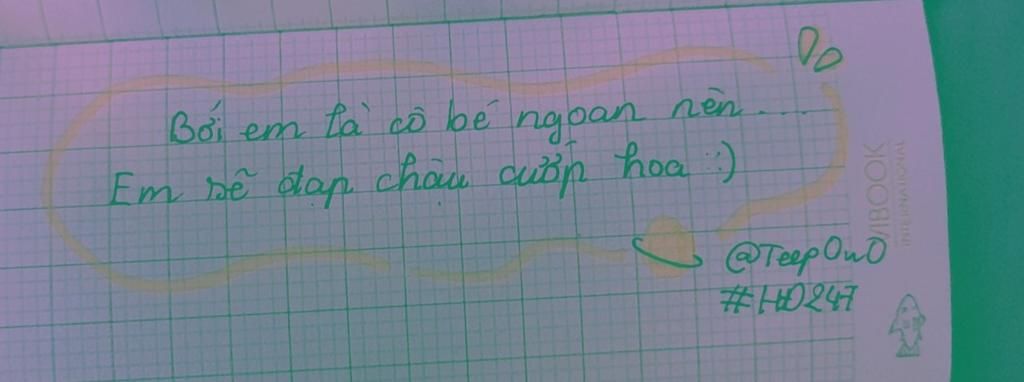 Bởi em là cô bé ngoan nên....
Em sẽ đạp chậu cướp hoa :)
@TeepOwO
#HD247
MBOOK
INTERNATIONAL